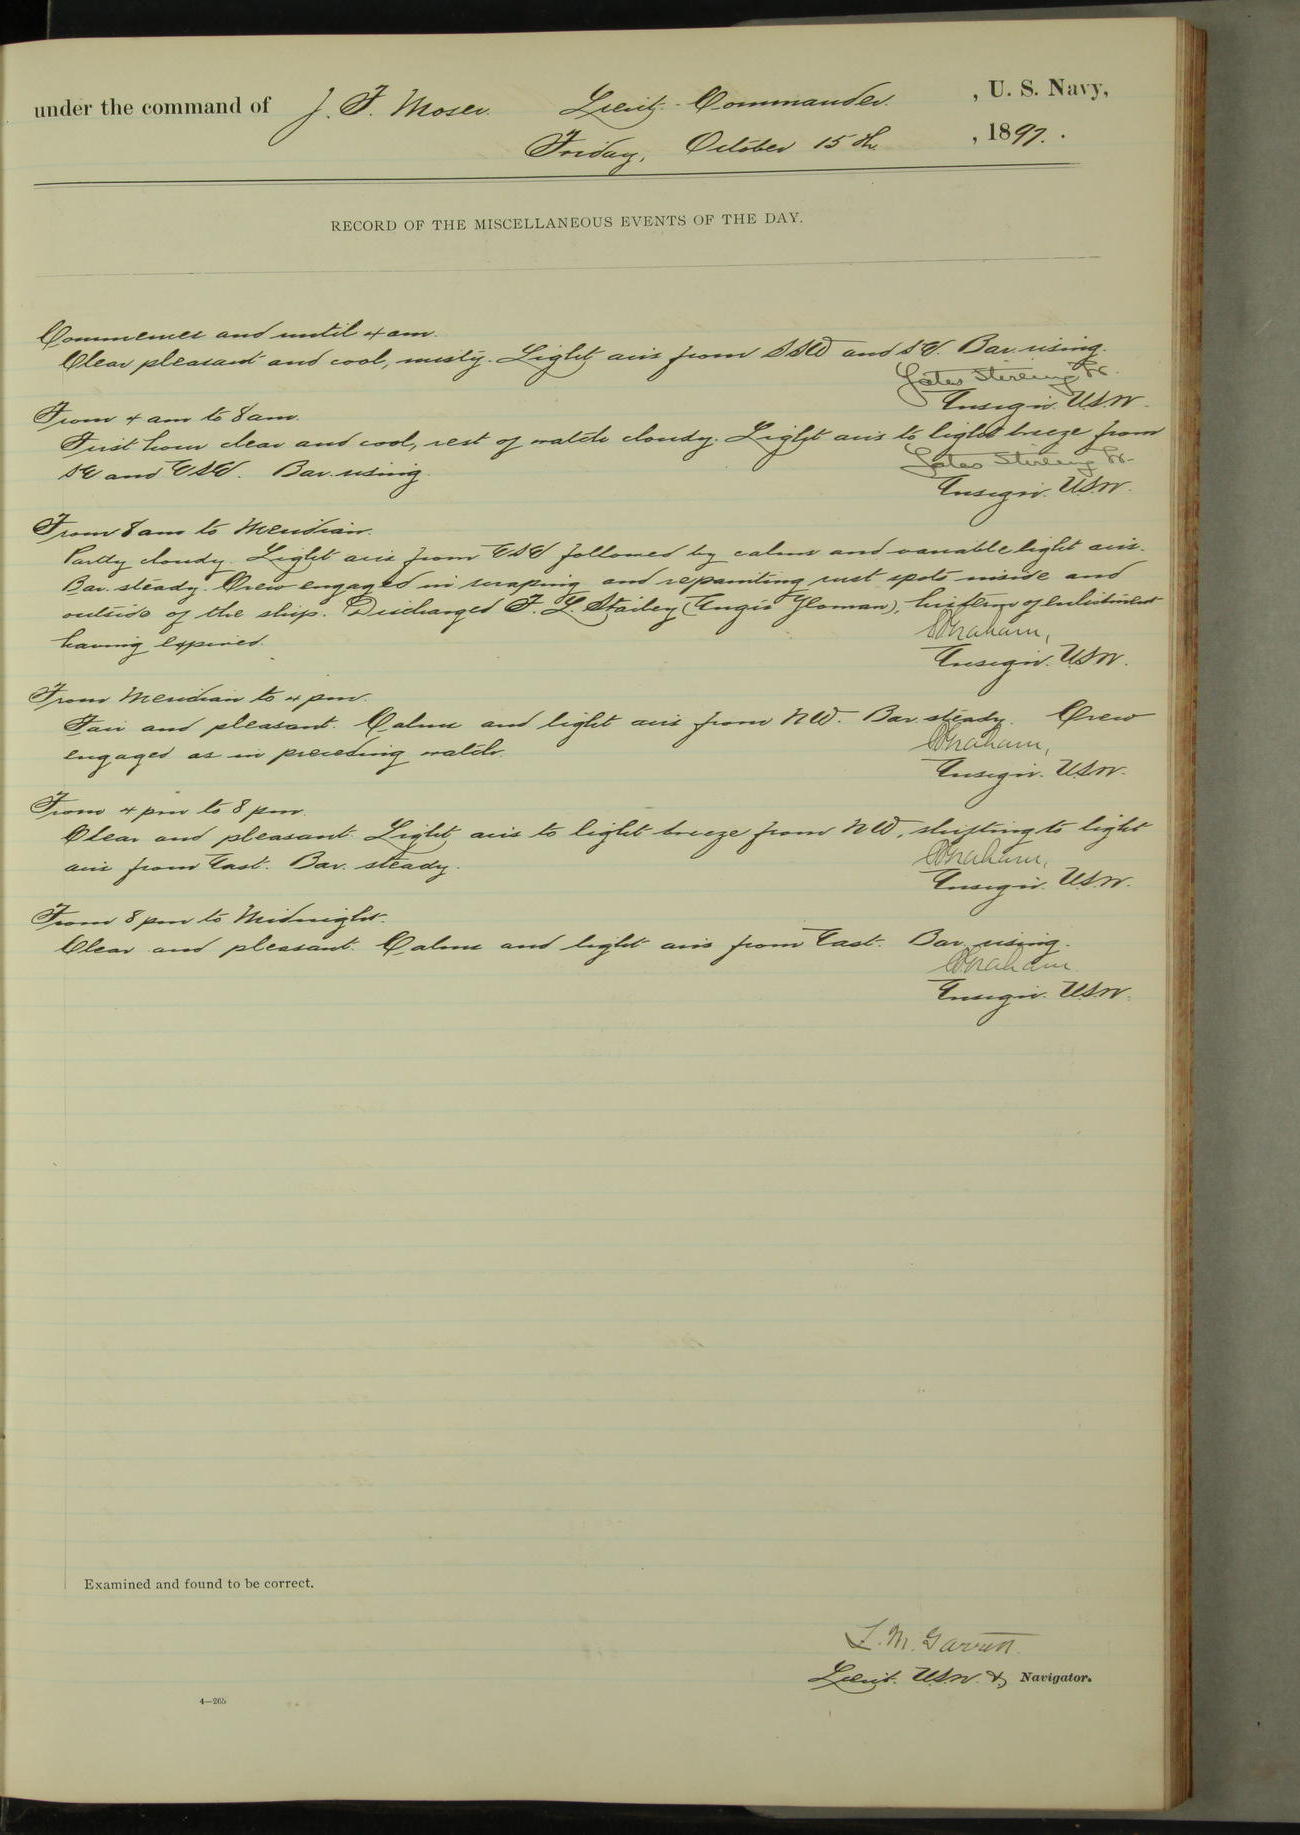 under the command of J. F. Moser. Lieut.-Commander. , U. S. Navy,
Friday, October 15th , 1897.
RECORD OF THE MISCELLANEOUS EVENTS OF THE DAY.
Commences and until 4 am.
Clear pleasant and cool, misty. Light airs from SSW and SE. Bar. rising.
Yates Stirling Jr.
Ensign. U.S.N.
From 4 am to 8 am.
First hour clear and cool, rest of watch cloudy. Light airs to light breeze from
SE and ESE. Bar. rising.
Yates Stirling Jr.
Ensign. U.S.N.
From 8 am to Meridian.
Partly cloudy. Light airs from ESE followed by calms and variable light airs.
Bar. steady. Crew engaged in scraping and repainting rust spots inside and
outside of the ship. Discharged F. L. Stailey (Engrs Yeoman), his term of enlistment
having expired.
Graham,
Ensign. U.S.N.
From Meridian to 4 pm.
Fair and pleasant. Calms and light airs from NW. Bar. steady. Crew
engaged as in preceding watch.
Graham,
Ensign. U.S.N.
From 4 pm to 8 pm.
Clear and pleasant. Light airs to light breeze from NW, shifting to light
airs from East. Bar. steady.
Graham,
Ensign. U.S.N.
From 8 pm to Midnight.
Clear and pleasant. Calms and light airs from East. Bar. rising.
Graham
Ensign. U.S.N.
Examined and found to be correct.
L. M. Garrett.
Lieut. U.S.N. & Navigator.
4—265